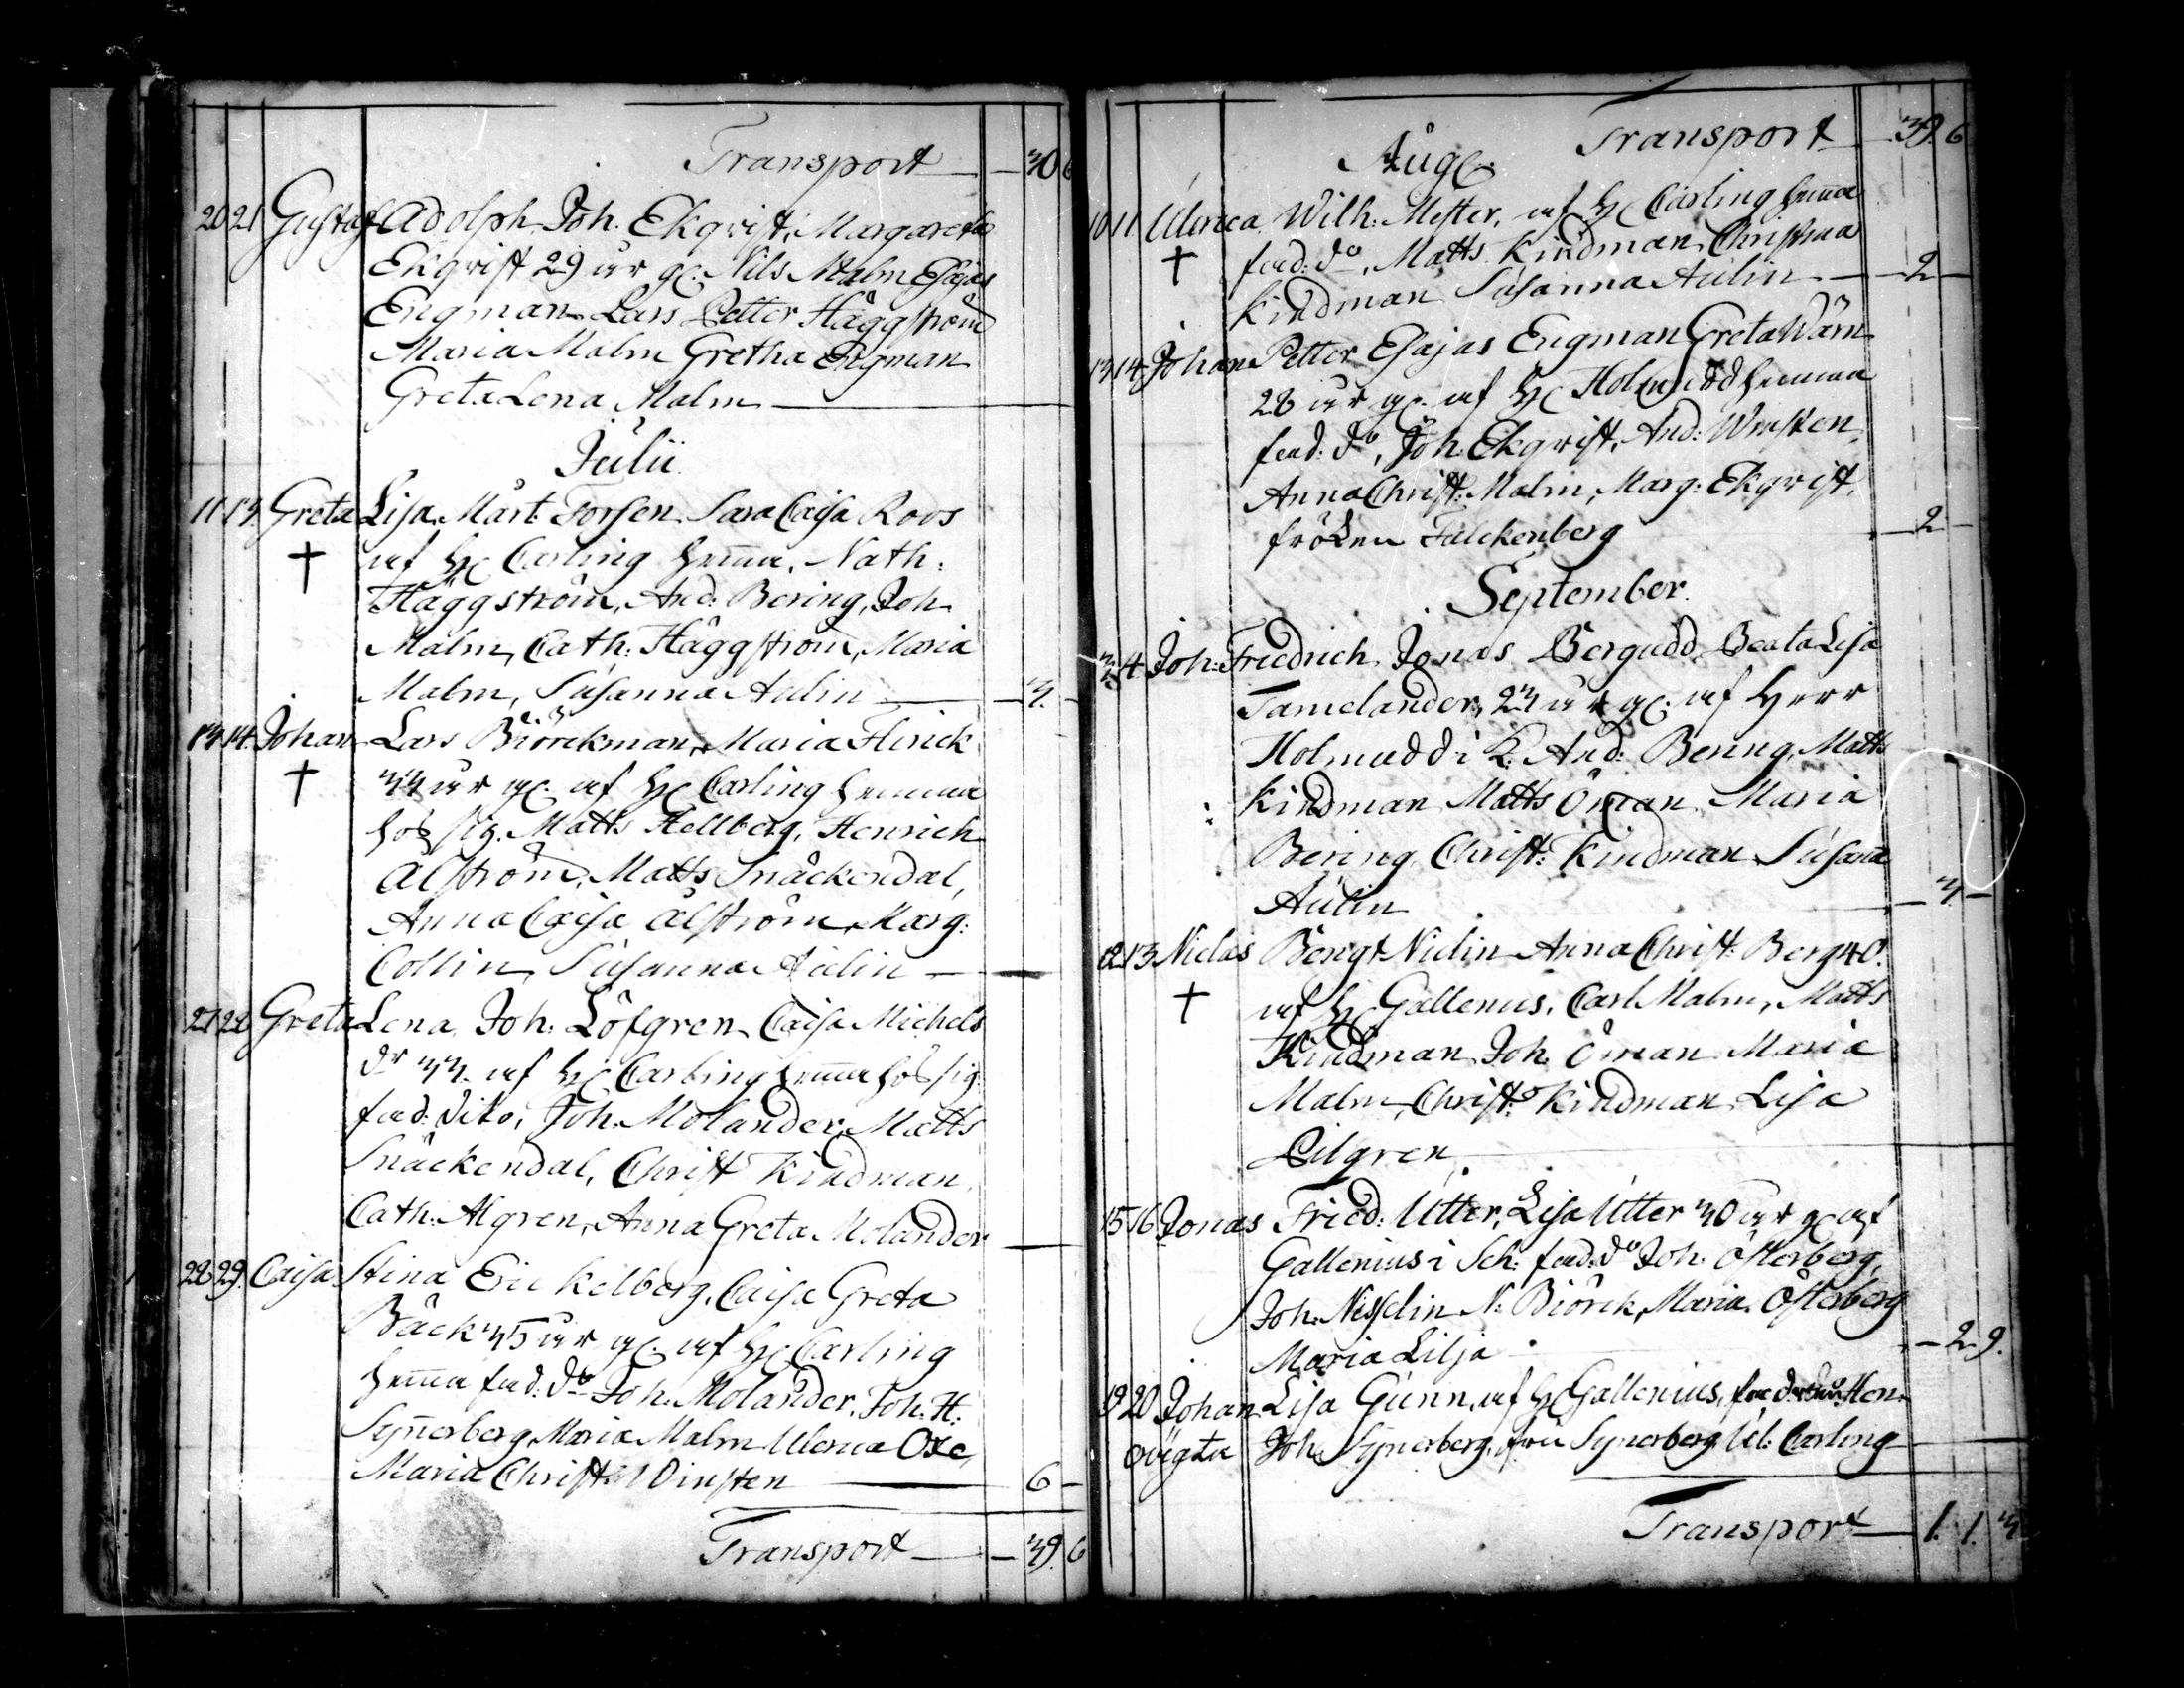 Transport — 30 6
20 21 Gustaf Adolph. Joh. Ekqvist, Margareta
Ekqvist 29 år gl. Nils Malm Esajas
Engman Lars Petter Häggström
Maria Malm Gretha Engman
Greta Lena Malm —
Julii
11 13 Greta Lisa. Mårt. Forsen Sara Caisa Roos
† af HC Carling hem̅a. Nath:
Häggström, And: Bering, Joh
Malm, Cath: Häggström, Maria
Malm, Susanna Aulin — 3. -
13 14 Johan Lars Biörckman, Maria Flinck
† 33 år gl. af HC Carling hemma
hos sig. Matts Hellberg, Henrich
Alström, Matts Snäckendal,
Anna Caisa Alström, Marg:
Collin, Susanna Aulin —
27 28 Greta Lena. Joh: Löfgren, Caisa Michels
dr 33. af HC Carling hem̅a hos sig.
fad: dito, Joh. Molander, Matts
Snäckendal, Christ Kindman,
Cath: Algren, Anna Greta Molander —
28 29. Caisa Stina Eric Kelberg, Caisa Greta
Bäck 35 år gl. af HC Carling
hem̅a fad: do Joh. Molander, Joh. H:
Syn̅erberg, Maria Malm Ulerica Oxe,
Maria Christ: Winsten — 6 -
Transport — 39. 6
Transport 39. 6
Aug.
10 11 Ulerica. Wilh: Mester, af HC Carling hem̅a
† fad: do, Matts Kindman, Christina
Kindman Susanna Aulin — 2 —
13 14 Johan Petter Esajas Engman Greta Wärn
28 år gl. af HC Holmudd hemma
fad: do, Joh. Ekqvist, And: Winsten,
Anna Christ: Malm, Marg: Ekqvist,
fröken Falckenberg — 2 —
September.
3 4 Joh: Friedrich. Jonas Bergudd, Beata Lisa
Tamelander, 23 år gl. af Herr
Holmudd i K. And: Bering, Matts
Kindman Matts Öman, Maria
Bering, Christ: Kindman Susana
Aulin — 3 —
12 13 Niclas Bengt Nidin Anna Christ: Berg 40.
† af HC Gallenius, Carl Malm, Matts
Kindman Joh. Öman Maria
Malm, Christ: Kindman, Lisa
Pilgren —
15 16 Jonas Fried: Utter, Lisa Utter 30 år gl af
Gallenius i Sch: fad: do Joh. Österberg,
Joh. Nisselin N: Biörck, Maria Österberg
Maria Lilja — 2 9.
19 20 Johan Lisa Gunn, af HC Gallenius, Hen:
oägta Joh. Syn̅erberg, fru Synerberg, Ul: Carling —
Transport — 1. 1. 3